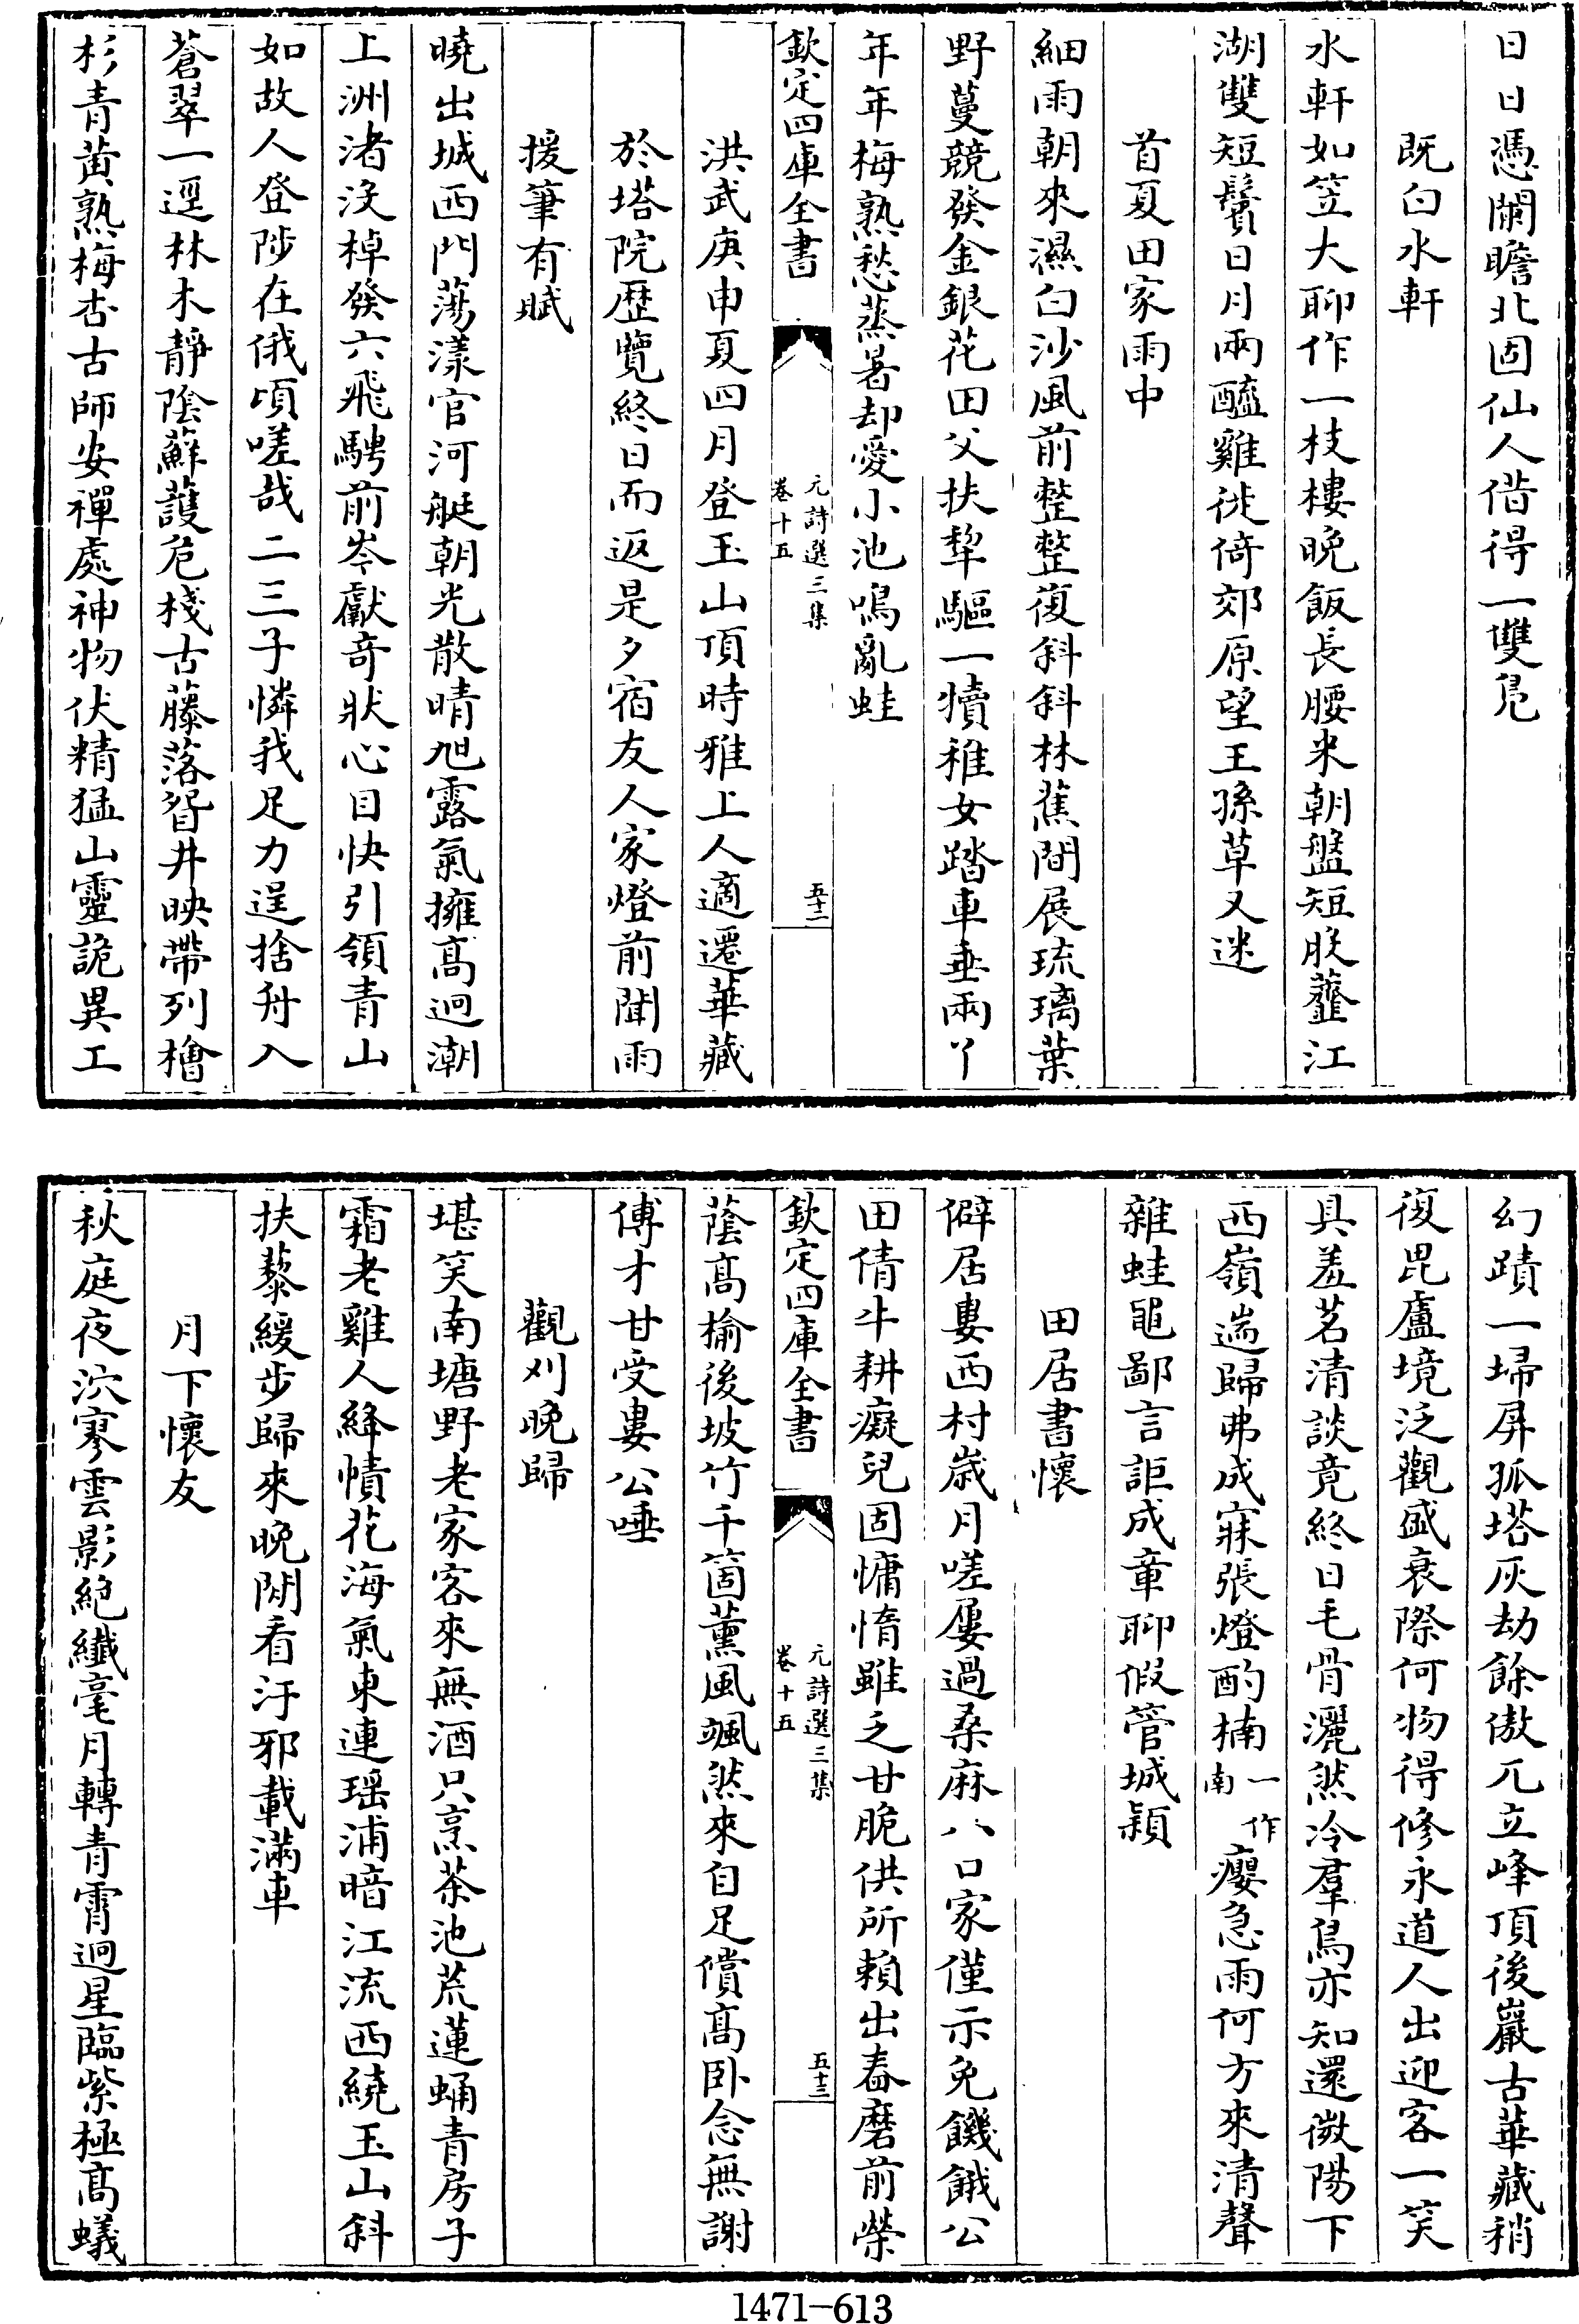 日日憑闌瞻北固仙人借得一雙鳧
既白水軒
水軒如笠大聊作一枝樓晩飯長腰米朝盤短脵虀江
湖雙短鬢日月兩醯雞徙倚郊原望王孫草又迷
首夏田家雨中
細雨朝來濕白沙風前整整復斜斜林蕉間展琉璃葉
野蔓競發金銀花田父扶犂驅一犢稚女踏車垂兩丫
年年梅熟愁蒸暑却愛小池鳴亂蛙
欽定四庫全書
元詩選三集
卷十五
五十二
洪武庚申夏四月登玉山頂時雅上人適遷華藏
於塔院歴覽終日而返是夕宿友人家燈前聞雨
援筆有賦
曉出城西門蕩漾官河艇朝光散晴旭露氣擁高迥潮
上洲渚沒棹發六飛騁前岑獻奇狀心目快引領青山
如故人登陟在俄頃嗟哉二三子憐我足力逞捨舟入
蒼翠一逕林木靜陰蘚護危棧古藤落眢井映帶列檜
杉青黃熟梅杏古師安禪處神物伏精猛山靈詭異工
幻蹟一埽屏孤塔灰劫餘傲兀立峰頂後巖古華藏稍
復毘盧境泛觀盛衰際何物得修永道人出迎客一笑
具羞茗清談竟終日毛骨灑然冷羣鳥亦知還微陽下
西嶺遄歸弗成寐張燈酌楠一作南癭急雨何方來清聲
雜蛙黽鄙言詎成章聊假管城穎
田居書懷
僻居婁西村歲月嗟屢過桑麻八口家僅示免饑餓公
田倩牛耕癡兒固慵惰雖乏甘脆供所賴出舂磨前榮
欽定四庫全書
元詩選三集
卷十五
五十三
蔭高榆後坡竹千箇薰風颯然來自足償高卧念無謝
傅才甘受婁公唾
觀刈晩歸
堪笑南塘野老家客來無酒只烹茶池荒蓮蛹青房子
霜老雞人絳幘花海氣東連瑤浦暗江流西繞玉山斜
扶藜緩步歸來晩閒看汙邪載滿車
月下懷友
秋庭夜泬寥雲影絕纖毫月轉青霄迥星臨紫極高蟻
1471-613